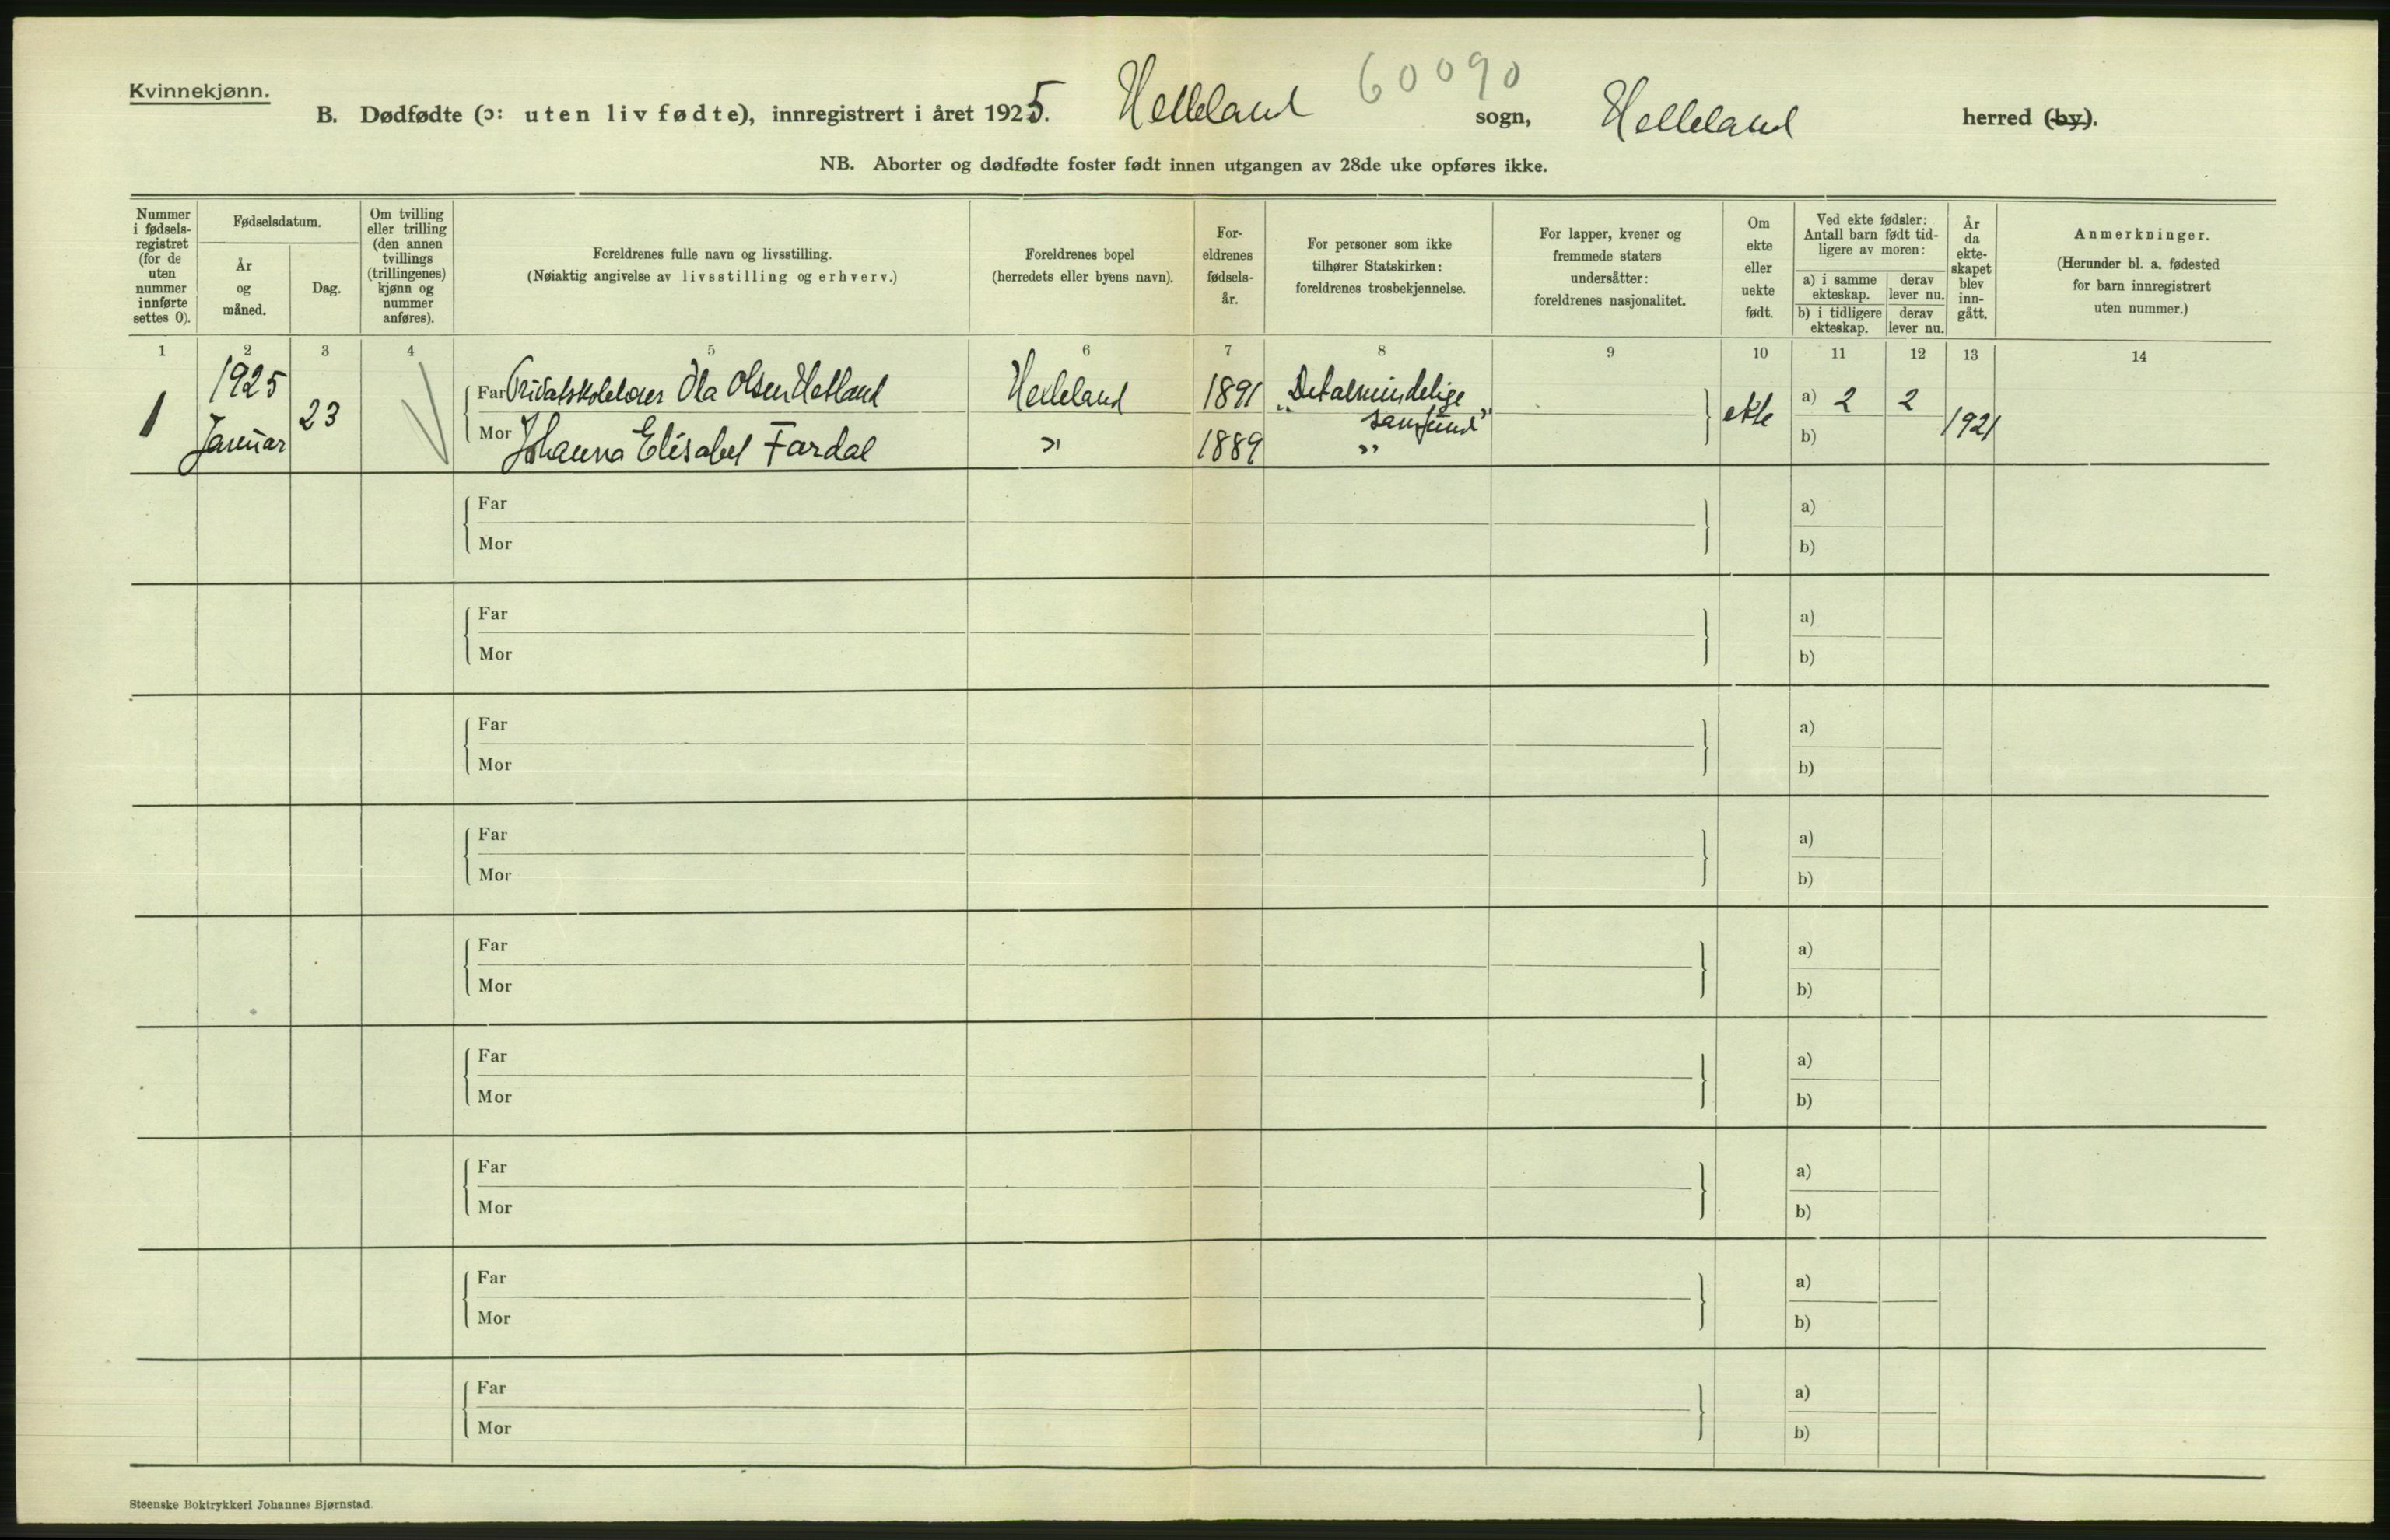 Kvinnekjønn.
60090
B. Dødfødte (ɔ: uten liv fødte), innregistrert i året 1925. Helleland sogn, Helleland herred (by).
NB. Aborter og dødfødte foster født innen utgangen av 28de uke opføres ikke.
Nummer
i fødsels-
registret
(for de
uten
nummer
innførte
settes 0).
Fødselsdatum.
År
og
måned.
Dag.
Om tvilling
eller trilling
(den annen
tvillings
(trillingenes)
kjønn og
nummer
anføres).
Foreldrenes fulle navn og livsstilling.
(Nøiaktig angivelse av livsstilling og erhverv.)
Foreldrenes bopel
(herredets eller byens navn).
For-
eldrenes
fødsels-
år.
For personer som ikke
tilhører Statskirken:
foreldrenes trosbekjennelse.
For lapper, kvener og
fremmede staters
undersåtter:
foreldrenes nasjonalitet.
Om
ekte
eller
uekte
født.
Ved ekte fødsler:
Antall barn født tid-
ligere av moren:
a) i samme
ekteskap.
derav
lever nu.
b) i tidligere
ekteskap.
derav
lever nu.
År
da
ekte-
skapet
blev
inn-
gått.
Anmerkninger.
(Herunder bl. a. fødested
for barn innregistrert
uten nummer.)
1 2 3 4 5 6 7 8 9 10 11 12 13 14
1
1925
Januar
23
Far Privatskolelærer Ola Olsen Hetland
Helleland
1891
"Det almindelige
samfund"
ekte
a) 2
2
1921
Mor Johanna Elisabet Fardal
"
1889
"
b)
Far
a)
Mor
b)
Far
a)
Mor
b)
Far
a)
Mor
b)
Far
a)
Mor
b)
Far
a)
Mor
b)
Far
a)
Mor
b)
Far
a)
Mor
b)
Far
a)
Mor
b)
Far
a)
Mor
b)
Steenske Boktrykkeri Johannes Bjørnstad.